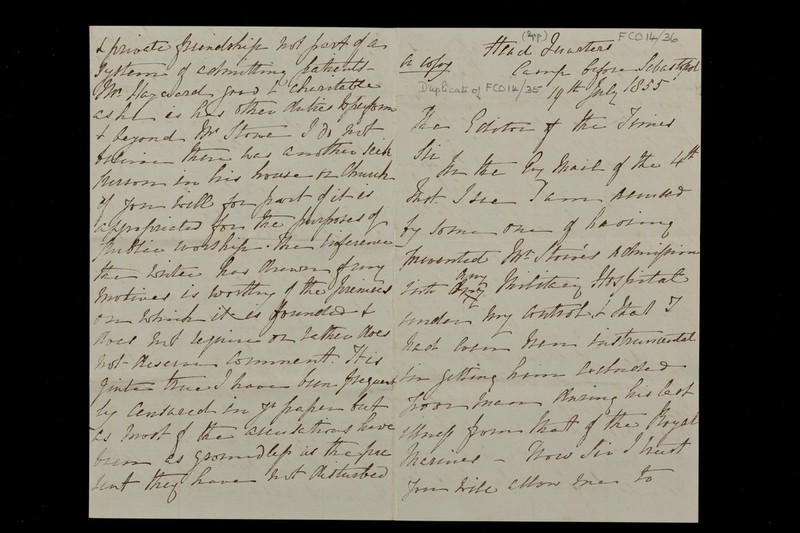 (4pp) FCO14/36
Head Quarters
a copy Camp before Sebastopol
Duplicate of FCO14/35 19th July 1855
The Editor of the Times
Sir
In the Evg Mail of the 4th
Inst I see I am accused
by some one of having
prevented Mr Stowe's admission
into any Military Hospital
under my control, & that I
had even been instrumental
in getting him excluded
poor man during his last
illness from that of the Royal
Marines – Now Sir I trust
you will allow me to
& private friendship not part of a
system of admitting patients
Mr Hayward good & charitable
as he is has other duties to perform
& beyond Mr Stowe I do not
believe there was another sick
person in his house or Church
if you will for part of it is
appropriated for the purposes of
public worship. The inference
the writer has drawn of my
motives is worthy of the premises
on which it is founded &
does not require or rather does
not deserve comment. It is
quite true I have been frequent
ly censured in yr paper but
as most of the accusations have
been as groundless as the pre
sent they have not disturbed